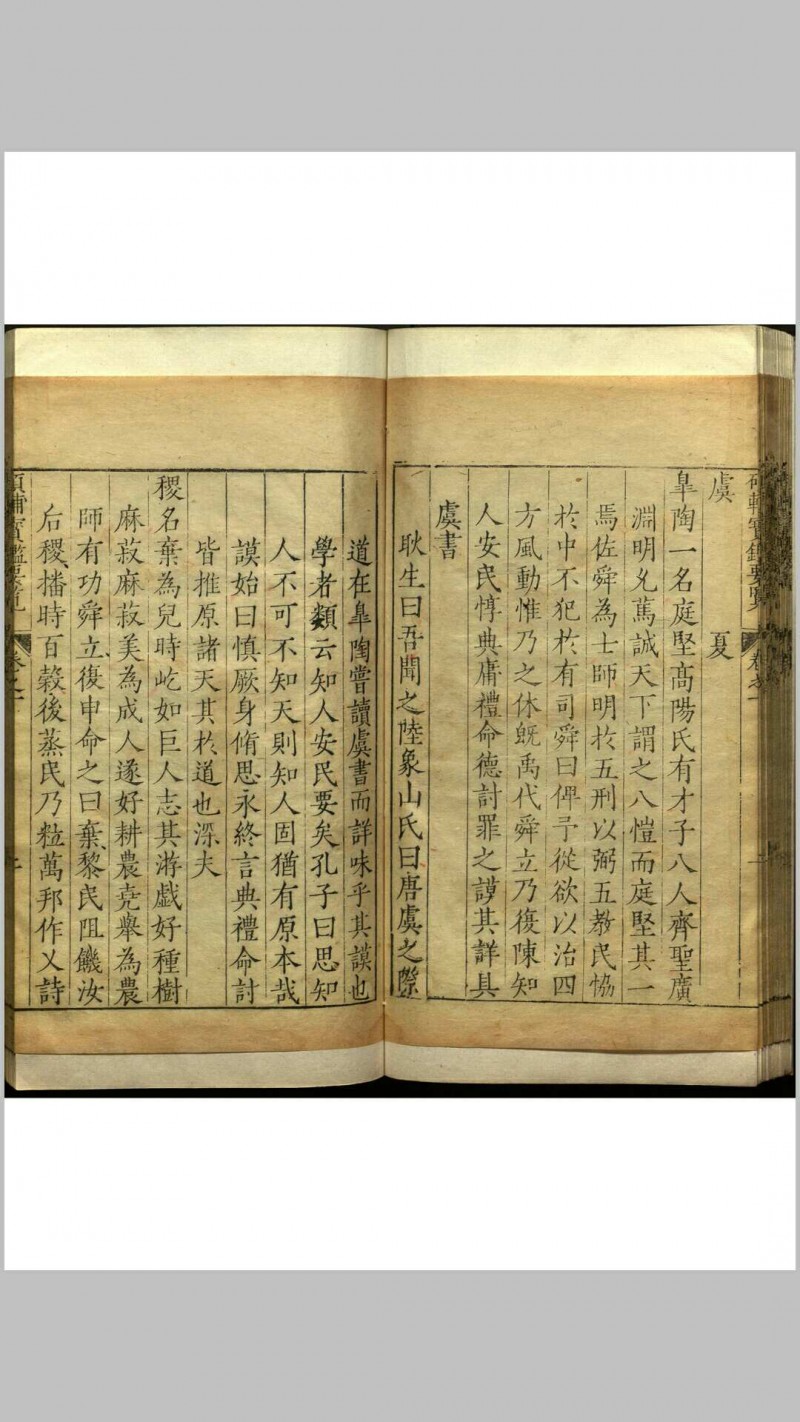 虞　夏
皐陶一名庭堅高陽氏有才子八人齊聖廣
淵明允篤誠天下謂之八愷而庭堅其一
焉佐舜為士師明於五刑以弼五教民恊
於中不犯於有司舜曰俾予從欲以治四
方風動惟乃之休旣禹代舜立乃復陳知
人安民惇典庸禮命德討罪之謨其詳具
虞書
耿生曰吾聞之陸象山氏曰唐虞之際
道在皐陶嘗讀虞書而詳味乎其謨也
學者類云知人安民要矣孔子曰思知
人不可不知天則知人固猶有原本哉
謨始曰慎厥身脩思永終言典禮命討
皆推原諸天其於道也深夫
稷名棄為兒時屹如巨人志其游戲好種樹
麻菽麻菽美為成人遂好耕農堯舉為農
師有功舜立復申命之曰棄黎民阻饑汝
后稷播時百穀後蒸民乃粒萬邦作乂詩